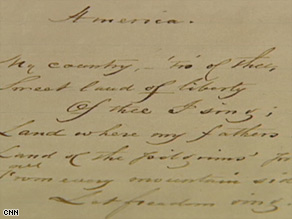 America.
My country, – 'tis of thee,
Sweet land of liberty
Of thee I sing;
Land where my fathers
Land of the pilgrims'
From every mountain sid
Let freedom ring.
CNN